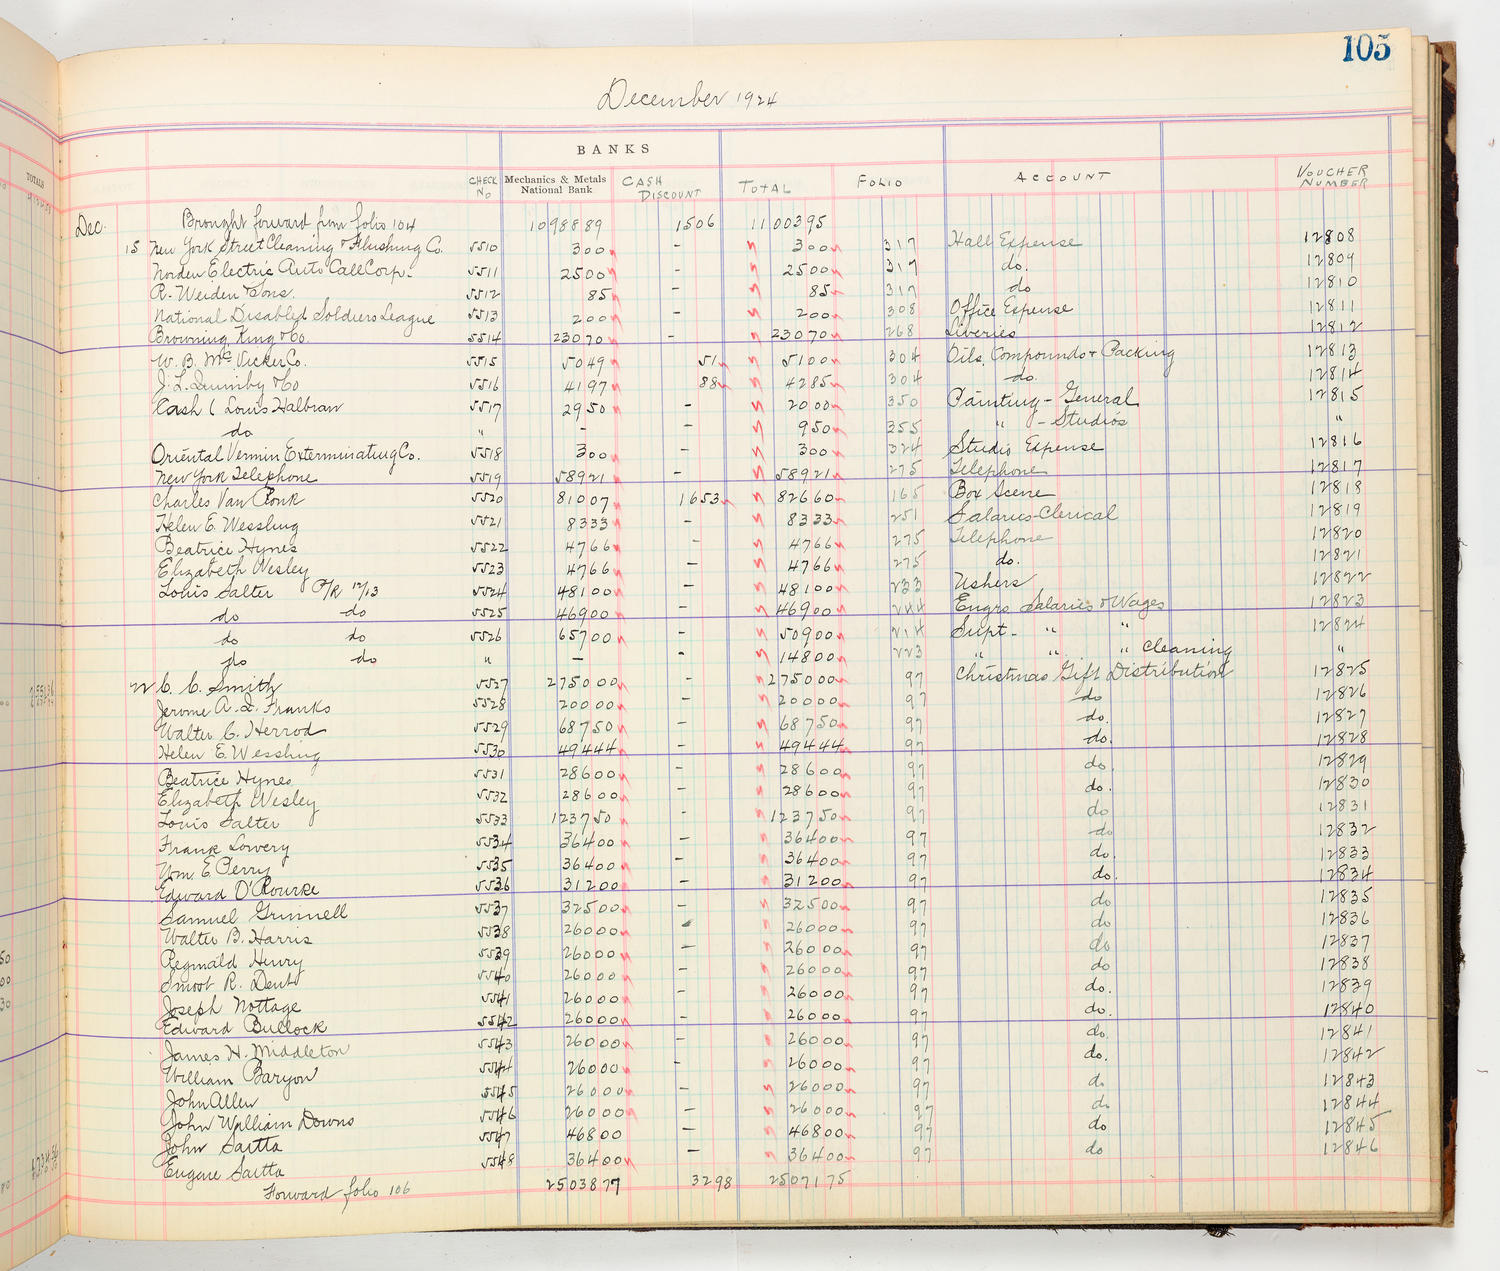 105
December 1924
BANKS
CHECK No Mechanics & Metals National Bank CASH DISCOUNT TOTAL FOLIO ACCOUNT VOUCHER NUMBER
Dec. Brought forward from folio 104 1098889 1506 1100395
15 New York Street Cleaning & Flushing Co. 5510 300 - 300 317 Hall Expense 12808
Norden Electric Auto Call Corp. 5511 2500 - 2500 317 do. 12809
R. Weiden & Sons. 5512 85 - 85 317 do 12810
National Disabled Soldiers League 5513 200 - 200 308 Office Expense 12811
Browning King & Co. 5514 23070 - 23070 268 Liveries 12812
W. B. McVicker Co. 5515 5049 51 5100 304 Oils, Compounds & Packing 12813
J. L. Quimby & Co 5516 4197 88 4285 304 do. 12814
Cash ( Louis Halbran 5517 2950 - 2000 350 Painting - General 12815
do " - - 950 355 " - Studios "
Oriental Vermin Exterminating Co. 5518 300 - 300 324 Studio Expense 12816
New York Telephone 5519 58921 - 58921 275 Telephone 12817
Charles Van Ronk 5520 81007 1653 82660 165 Box Scene 12818
Helen E. Wessling 5521 8333 - 8333 251 Salaries-Clerical 12819
Beatrice Hynes 5522 4766 - 4766 275 Telephone 12820
Elizabeth Wesley 5523 4766 - 4766 275 do. 12821
Louis Salter P/R 12/13 5524 48100 - 48100 233 Ushers 12822
do do 5525 46900 - 46900 244 Engrs. Salaries & Wages 12823
do do 5526 65700 - 50900 214 Supt- " " 12824
do do " - - 14800 223 " " " Cleaning "
22 C. C. Smith 5527 275000 - 275000 97 Christmas Gift Distribution 12825
Jerome A. Q. Franks 5528 20000 - 20000 97 do 12826
Walter C. Herrod 5529 68750 - 68750 97 do. 12827
Helen E. Wessling 5530 49444 - 49444 97 do. 12828
Beatrice Hynes 5531 28600 - 28600 97 do. 12829
Elizabeth Wesley 5532 28600 - 28600 97 do. 12830
Louis Salter 5533 123750 - 123750 97 do 12831
Frank Lowery 5534 36400 - 36400 97 do 12832
Wm. E Perry 5535 36400 - 36400 97 do. 12833
Edward O'Rourke 5536 31200 - 31200 97 do. 12834
Samuel Grinnell 5537 32500 - 32500 97 do 12835
Walter B. Harris 5538 26000 - 26000 97 do 12836
Reginald Henry 5539 26000 - 26000 97 do 12837
Smoot R. Dent 5540 26000 - 26000 97 do 12838
Joseph Nottage 5541 26000 - 26000 97 do. 12839
Edward Bullock 5542 26000 - 26000 97 do. 12840
James H. Middleton 5543 26000 - 26000 97 do. 12841
William Baryon 5544 26000 - 26000 97 do. 12842
John Allen 5545 26000 - 26000 97 do 12843
John William Downs 5546 26000 - 26000 97 do 12844
John Saitta 5547 46800 - 46800 97 do 12845
Eugene Saitta 5548 36400 - 36400 97 do 12846
Forward folio 106 2503877 3298 2507175